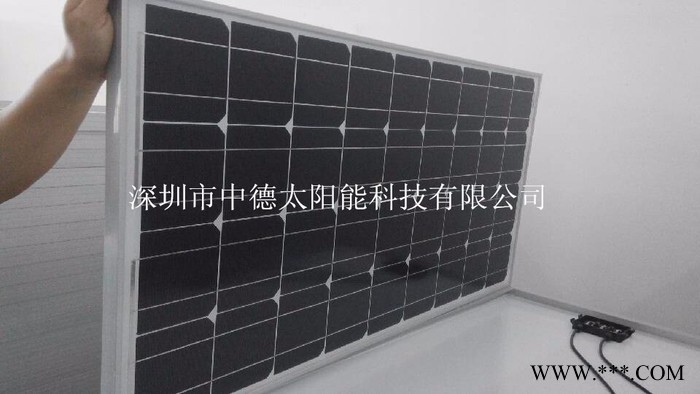 深圳市中德太阳能科技有限公司
WWW.***.COM